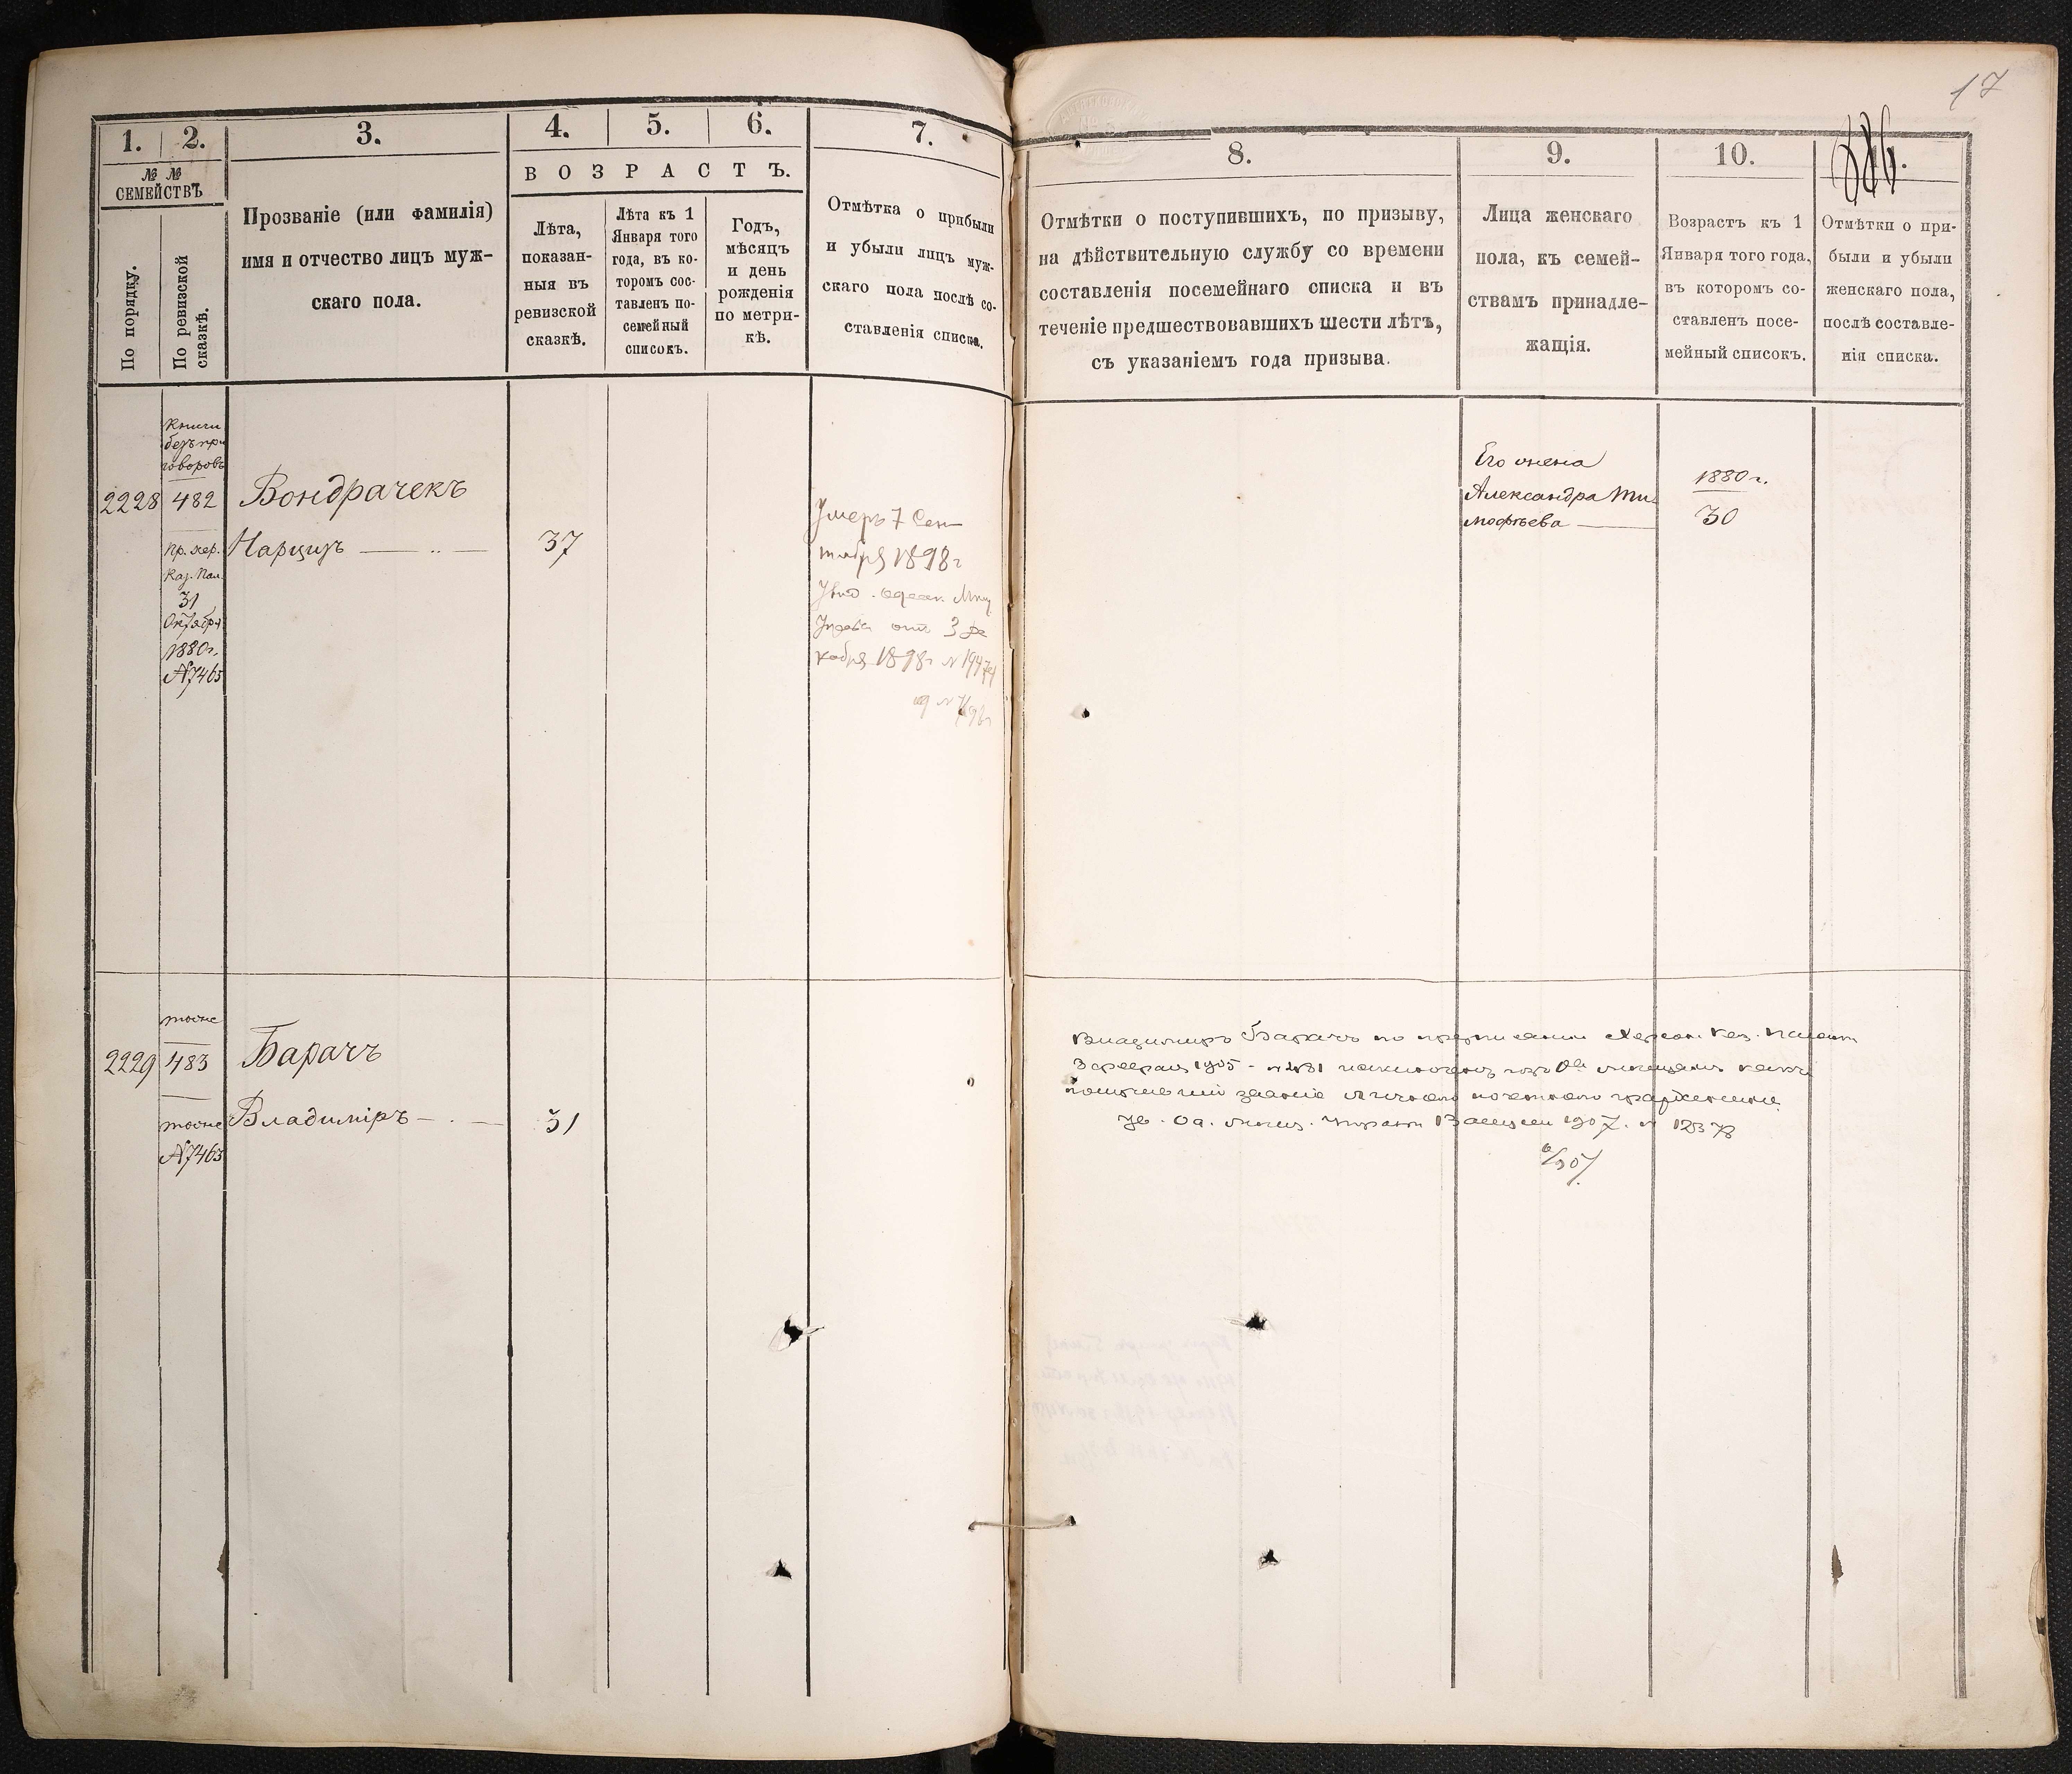 17
1. 2. 3. 4. 5. 6. 7.
№ №
СЕМЕЙСТВЪ
По порядку.
По ревизской
сказкѣ.
Прозваніе (или фамилія)
имя и отчество лицъ муж-
скаго пола.
ВОЗРАСТЪ.
Лѣта,
показан-
ныя въ
ревизской
сказкѣ.
Лѣта къ 1
Января того
года, въ ко-
торомъ сос-
тавленъ по-
семейный
списокъ.
Годъ,
мѣсяцъ
и день
рожденія
по метри-
кѣ.
Отмѣтка о прибыли
и убыли лицъ муж-
скаго пола послѣ со-
ставленія списка.
8. 9. 10.
Отмѣтки о поступившихъ, по призыву,
на дѣйствительную службу со времени
составленія посемейнаго списка и въ
теченіе предшествовавшихъ шести лѣтъ,
съ указаніемъ года призыва.
Лица женскаго
пола, къ семей-
ствамъ принадле-
жащія.
Возрастъ къ 1
Января того года,
въ которомъ со-
ставленъ посе-
мейный списокъ.
Отмѣтки о при-
были и убыли
женскаго пола,
послѣ составле-
нія списка.
2228
Книги
безъ при
говоровъ
482
Пр. Хер.
Каз. Пал.
31
Октября
1880г.
№7463
Вондрачекъ
Нарцизъ
37
Умеръ 7 Сен
тября 1898г
Увѣд. одесск. Мѣщ
Управы отъ 3 де
кабря 1898г №
Его жена
Александра Ти-
мофѣева
1880г.
30
2229
тоже
483
тоже
№7463
Барачъ
Владиміръ
31
Владиміръ Барачъ по предписанію Херсон. Каз. Палаты
3 февраля 1905 - № исключенъ изъ Од. мѣщанъ какъ
получившій званіе личнаго почетнаго гражданина
Ув. Од. мѣщ. Управы 1907. №